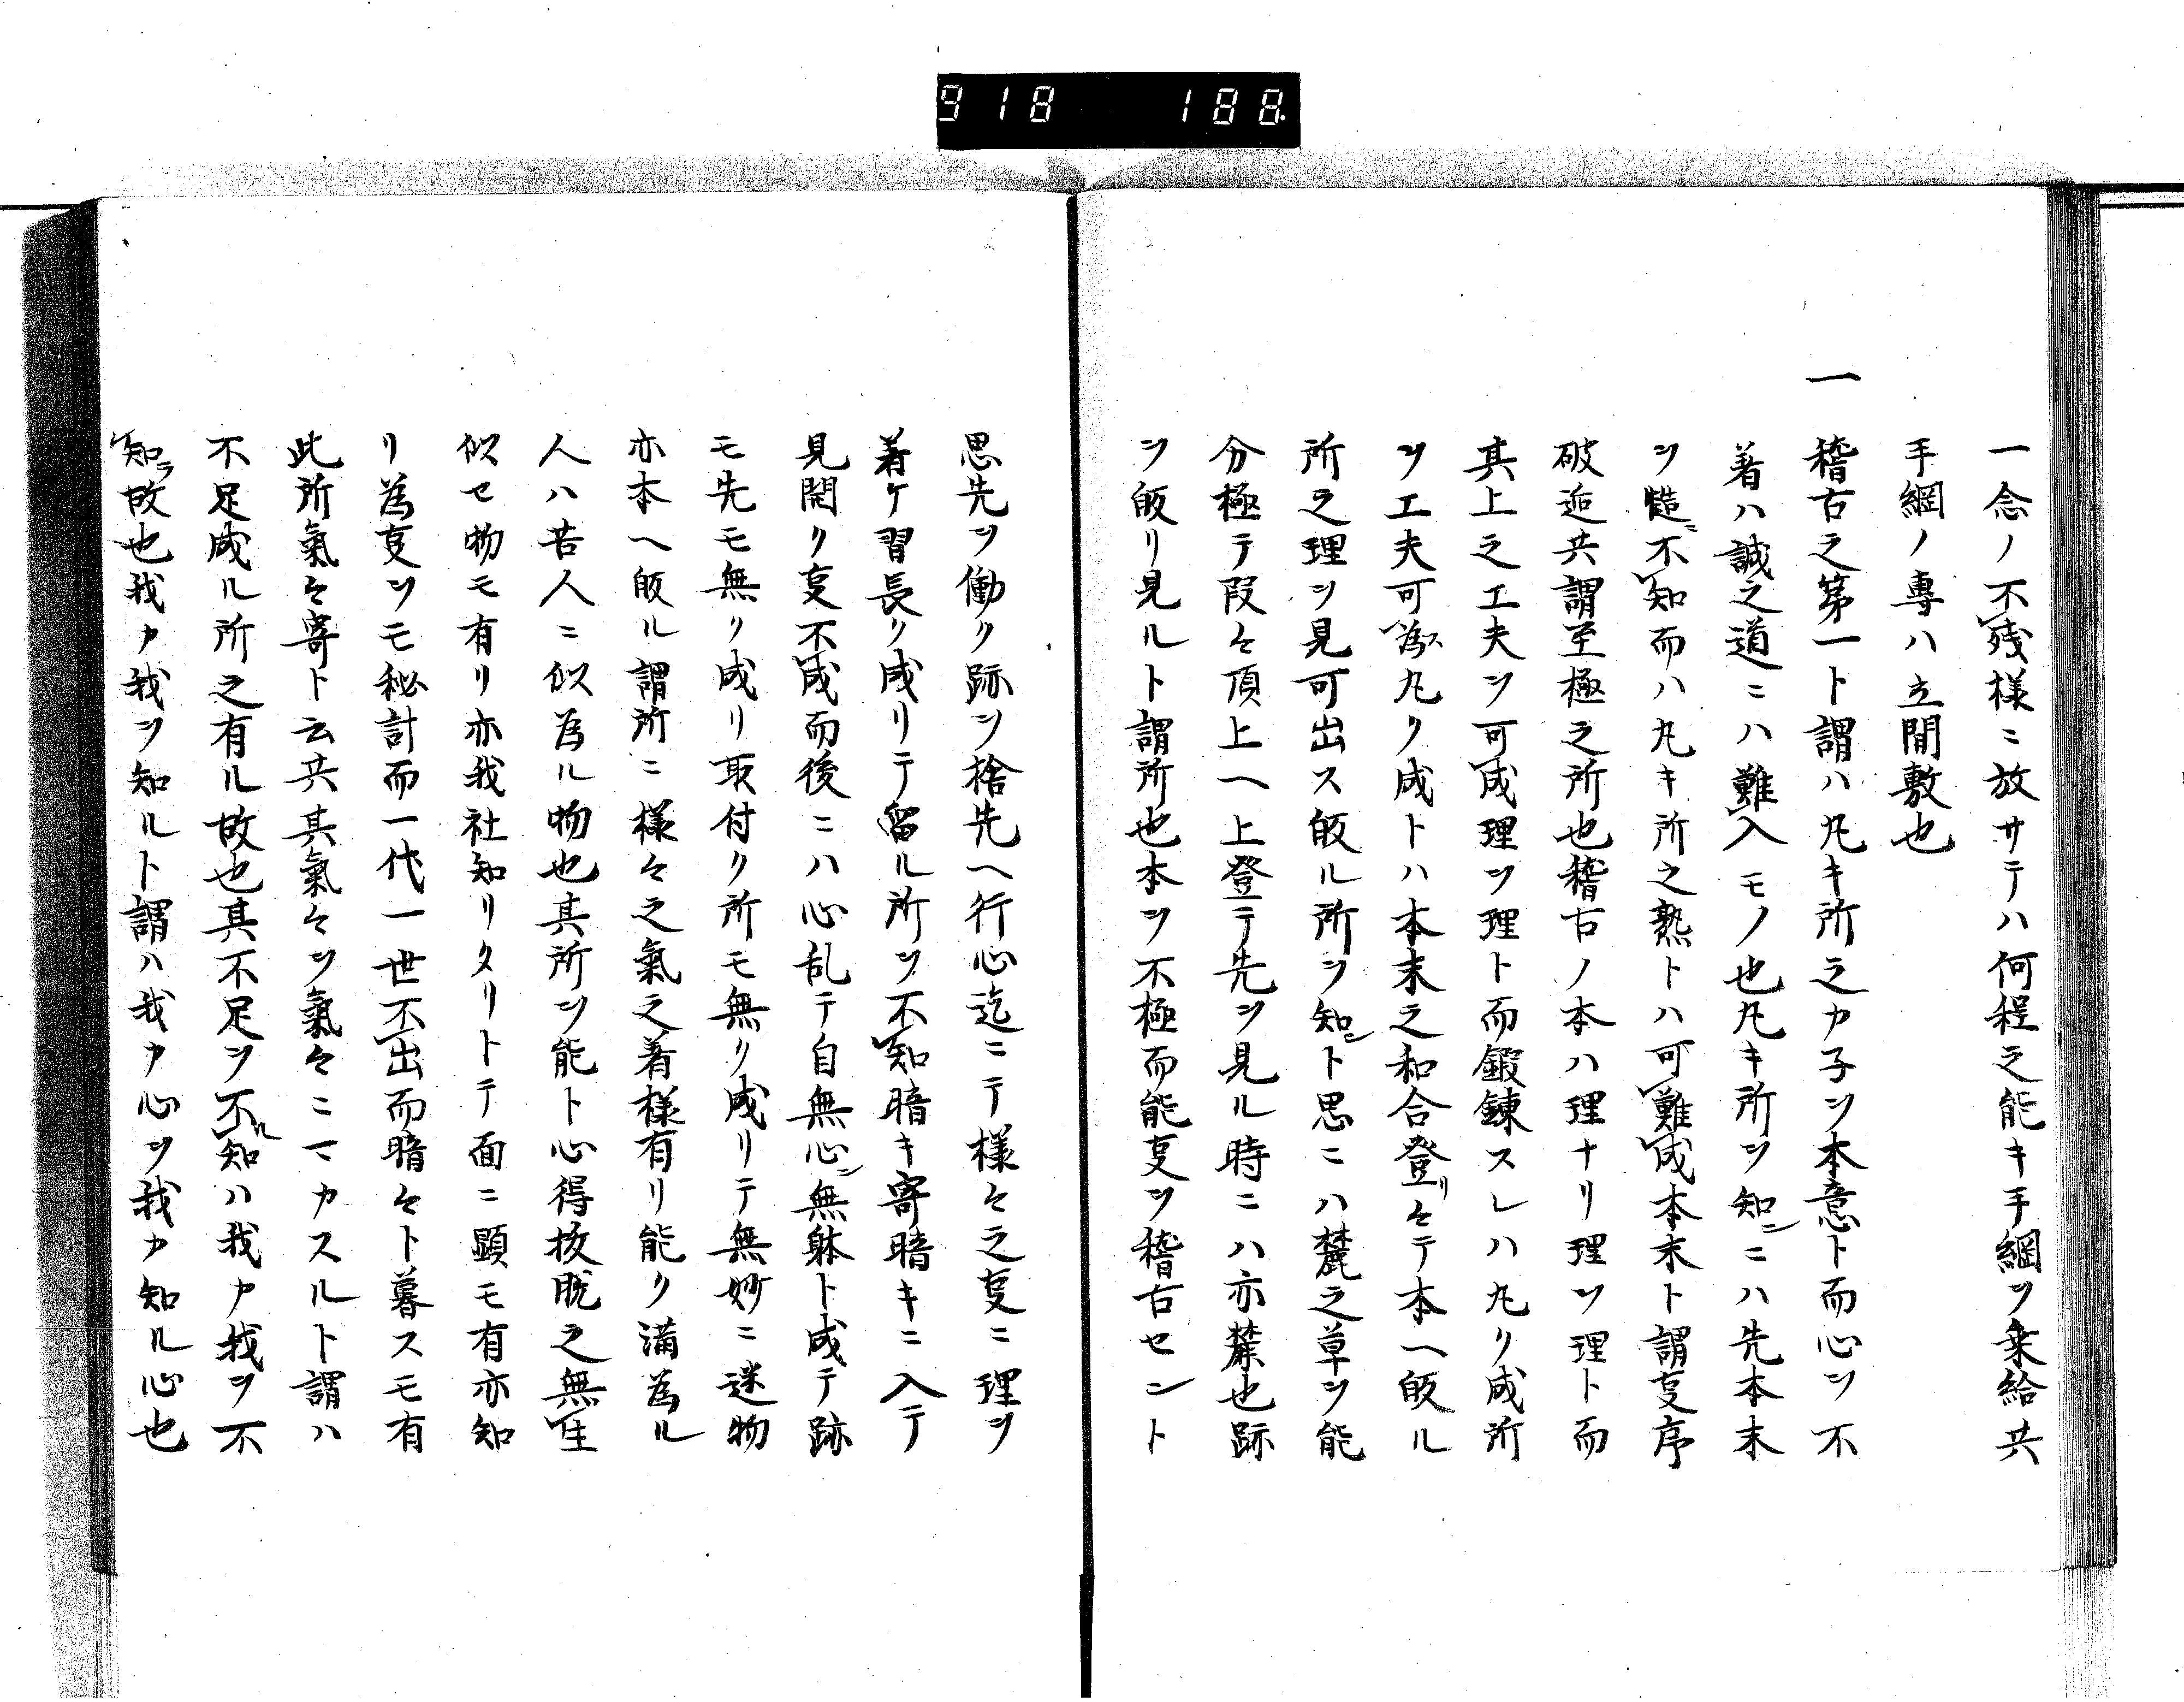 918 188
一念ノ不残様ニ放サテハ何程之能キ手綱ヲ乗給共
手綱ノ專ハ立開敷也
一稽古之第一ト謂ハ凡キ所之カ子ヲ本意ト而心ヲ不
着ハ誠之道ニハ難入モノ也凡キ所ヲ知ンニハ先本末
ヲ慥ニ不知而ハ凡キ所之熟トハ可難成本末ト謂叓序
破逅共謂至極之所也稽古ノ本ハ理ナリ理ヲ理ト而
其上之工夫ヲ可成理ヲ理ト而鍛錬スレハ凡リ成所
ヲ工夫可為ス凡ク成トハ本末之和合登リ々テ本ヘ皈ル
所之理ヲ見可出ス皈ル所ヲ知ント思ニハ麓之草ヲ能
分極テ段々頂上ヘ上登テ先ヲ見ル時ニハ亦麓也跡
ヲ皈リ見ルト謂所也本ヲ不極而能叓ヲ稽古セント
思先ヲ働ク跡ヲ捨先ヘ行心迄ニテ様々之叓ニ理ヲ
着ケ習長ク成リテ留ル所ヲ不知暗キ寄暗キニ入テ
見開ク叓不成而後ニハ心乱テ自無心ン無躰ト成テ跡
モ先モ無ク成リ取付ク所モ無ク成リテ無妙ニ迷物
亦本ヘ皈ル謂所ニ様々之氣之着様有リ能ク満為ル
人ハ苦人ニ似為ル物也其所ヲ能ト心得抜脱之無生
似セ物モ有リ亦我社知リタリトテ面ニ顕モ有亦知
リ為叓ヲモ秘計而一代一世不出而暗々ト暮スモ有
此所氣々寄ト云共其氣々ヲ氣々ニマカスルト謂ハ
不足成ル所之有ル故也其不足ヲ不ル知ハ我カ我ヲ不
知ラ故也我カ我ヲ知ルト謂ハ我カ心ヲ我カ知ル心也